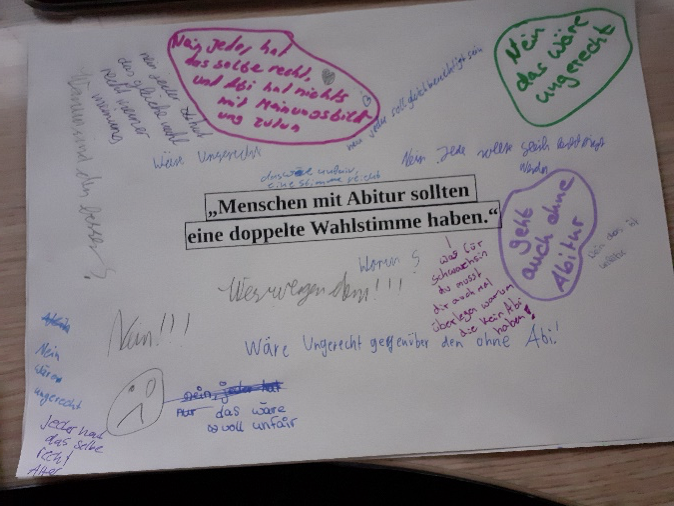 Nein jeder hat
das selbe recht,
und Abi hat nichts
mit Meinungsbild
ung zutun
Nein
das wäre
ungerecht
nein jeder
das gleiche recht
meinung
nein jeder soll gleichberechtigt sein
Wäre Ungerecht
das wäre unfair,
eine stimme reicht
Nein Jede sollte gleich
werden
„Menschen mit Abitur sollten
eine doppelte Wahlstimme haben.“
geht
auch ohne
Abitur
Warum
besser?
Worum ?
Weswegen denn!!!
!
was für
schwachsin
du musst
dir auch mal
überlegen warum
die kein Abi
haben!
Nein!!!
Wäre Ungerecht gegenüber den ohne Abi!
Nein
wäre
ungerecht
nein, jeder hat
nur das wäre
voll unfair
jeder hat
das selbe
recht
Alter